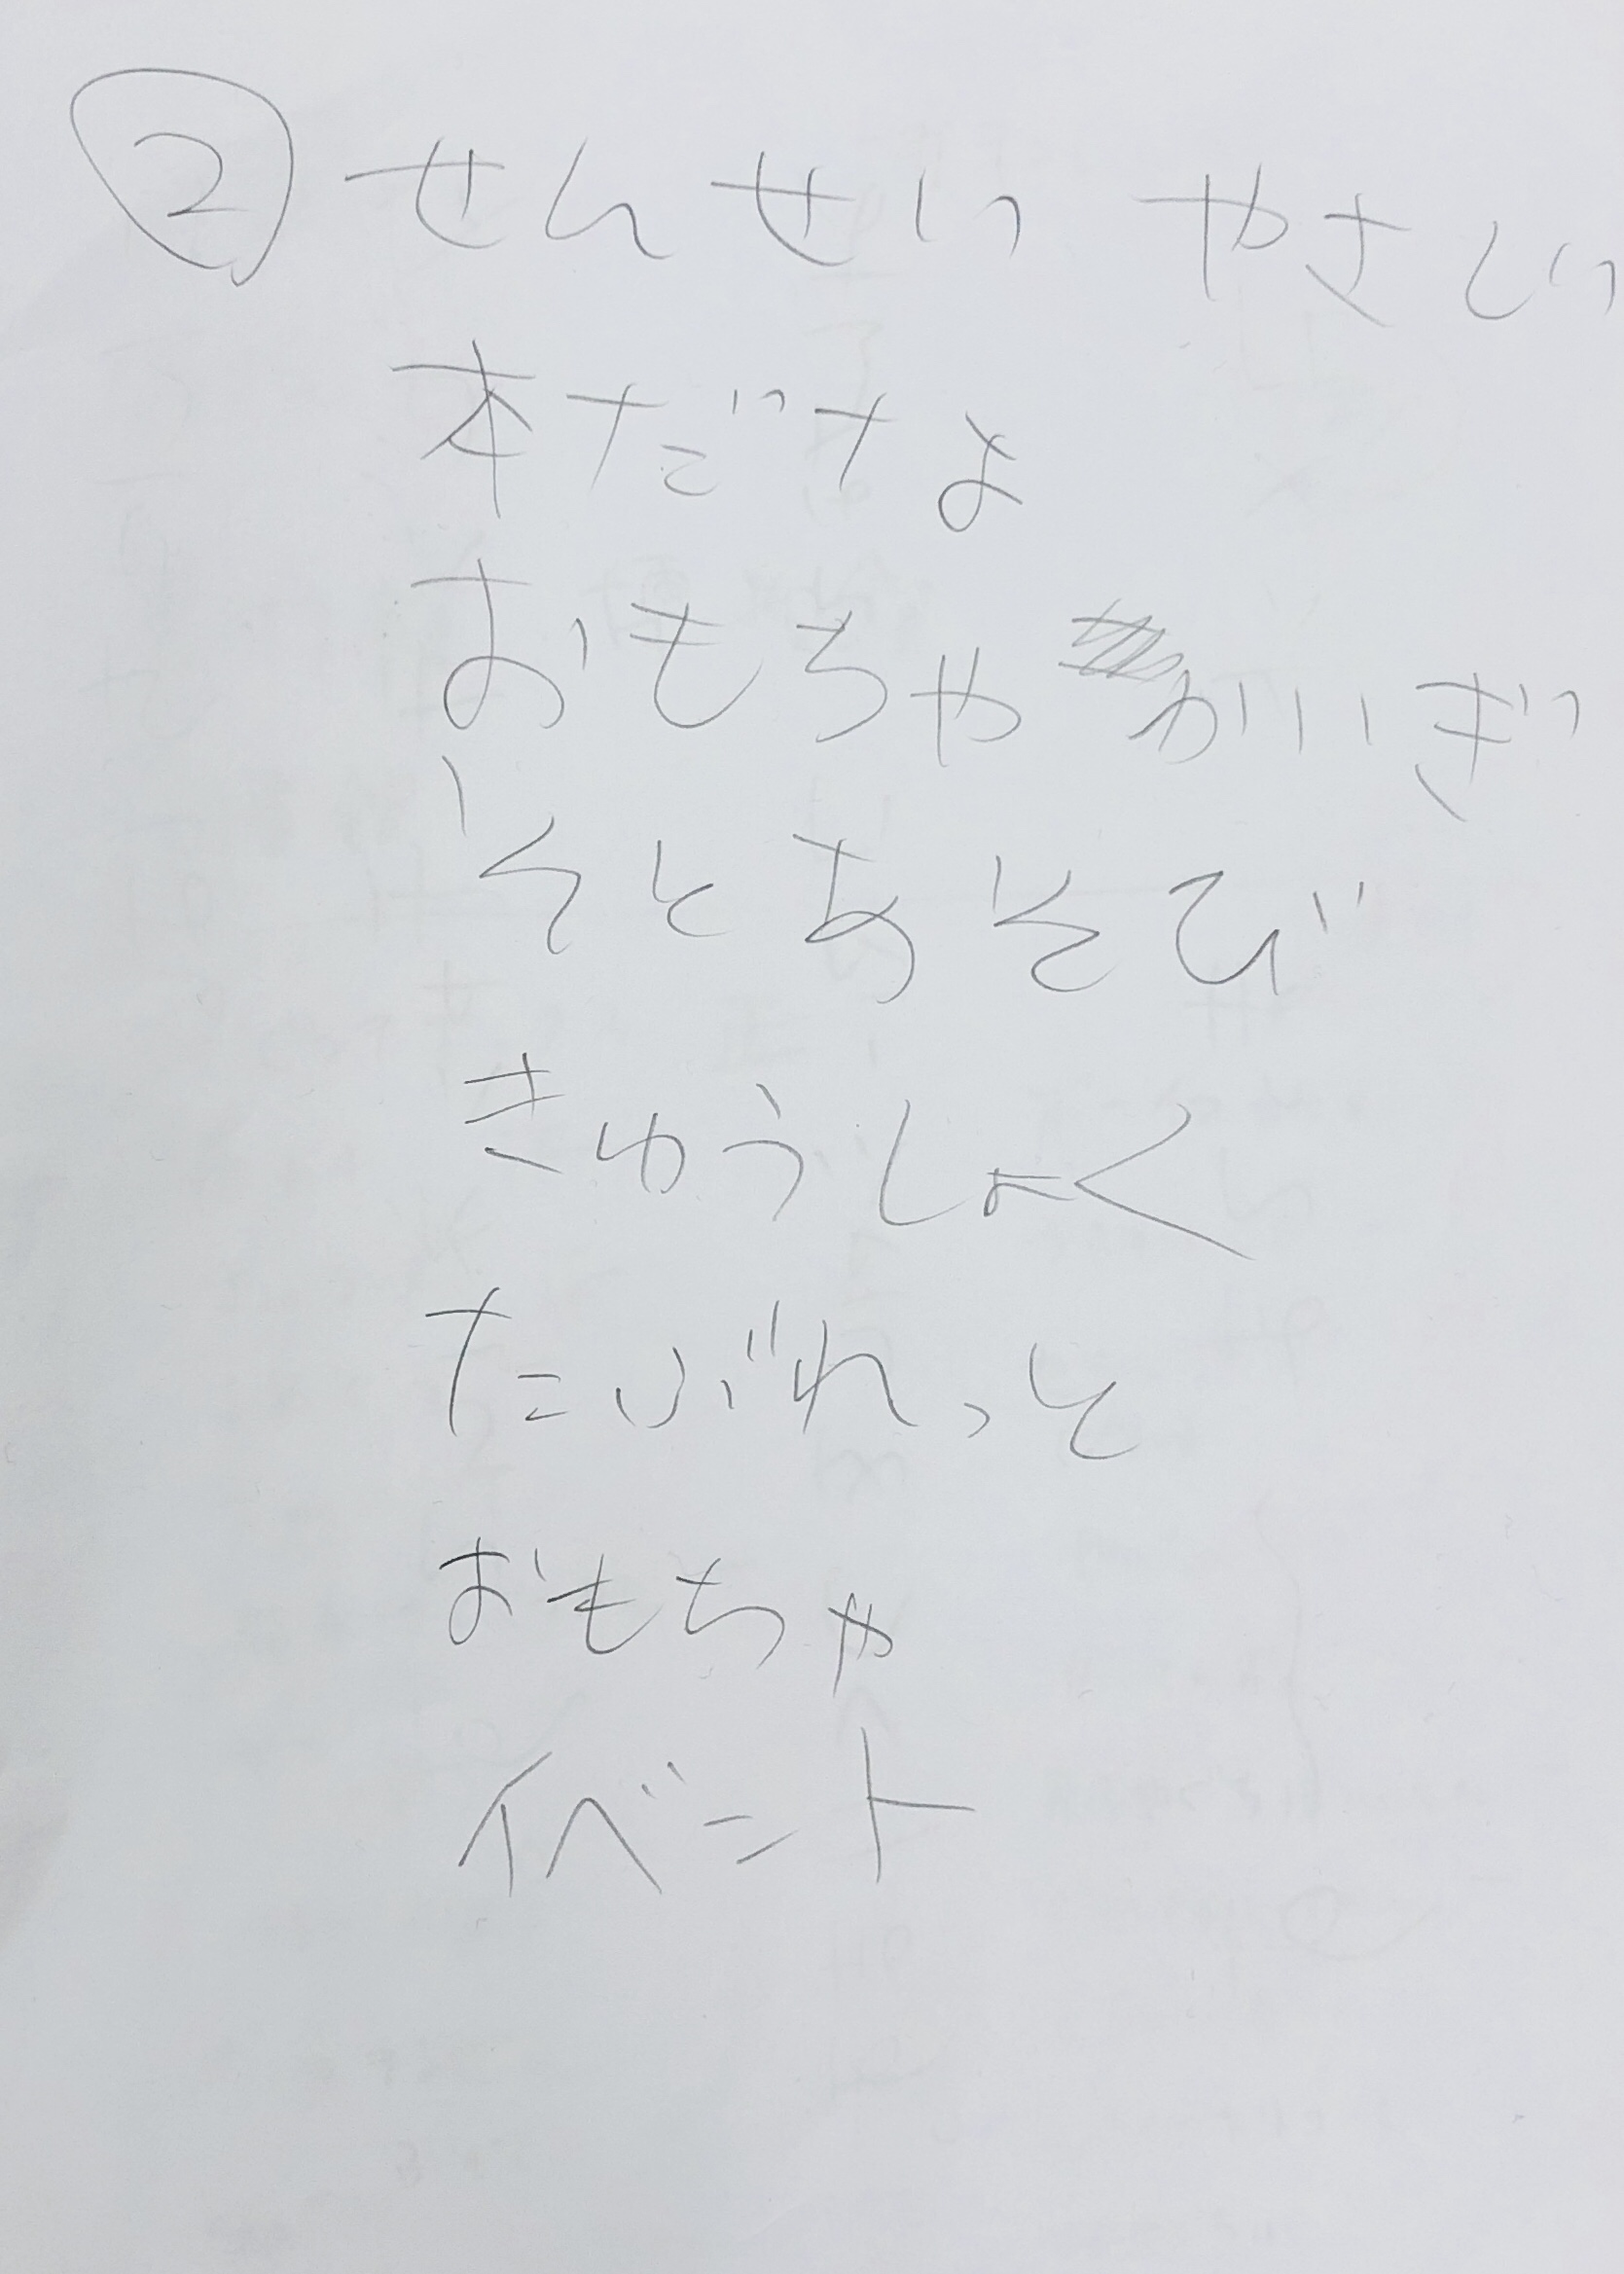 ② せんせい やさしい
本だなよ
おもちゃ かいぎ
そとあそび
きゅうしょく
たぶれっと
おもちゃ
イベント